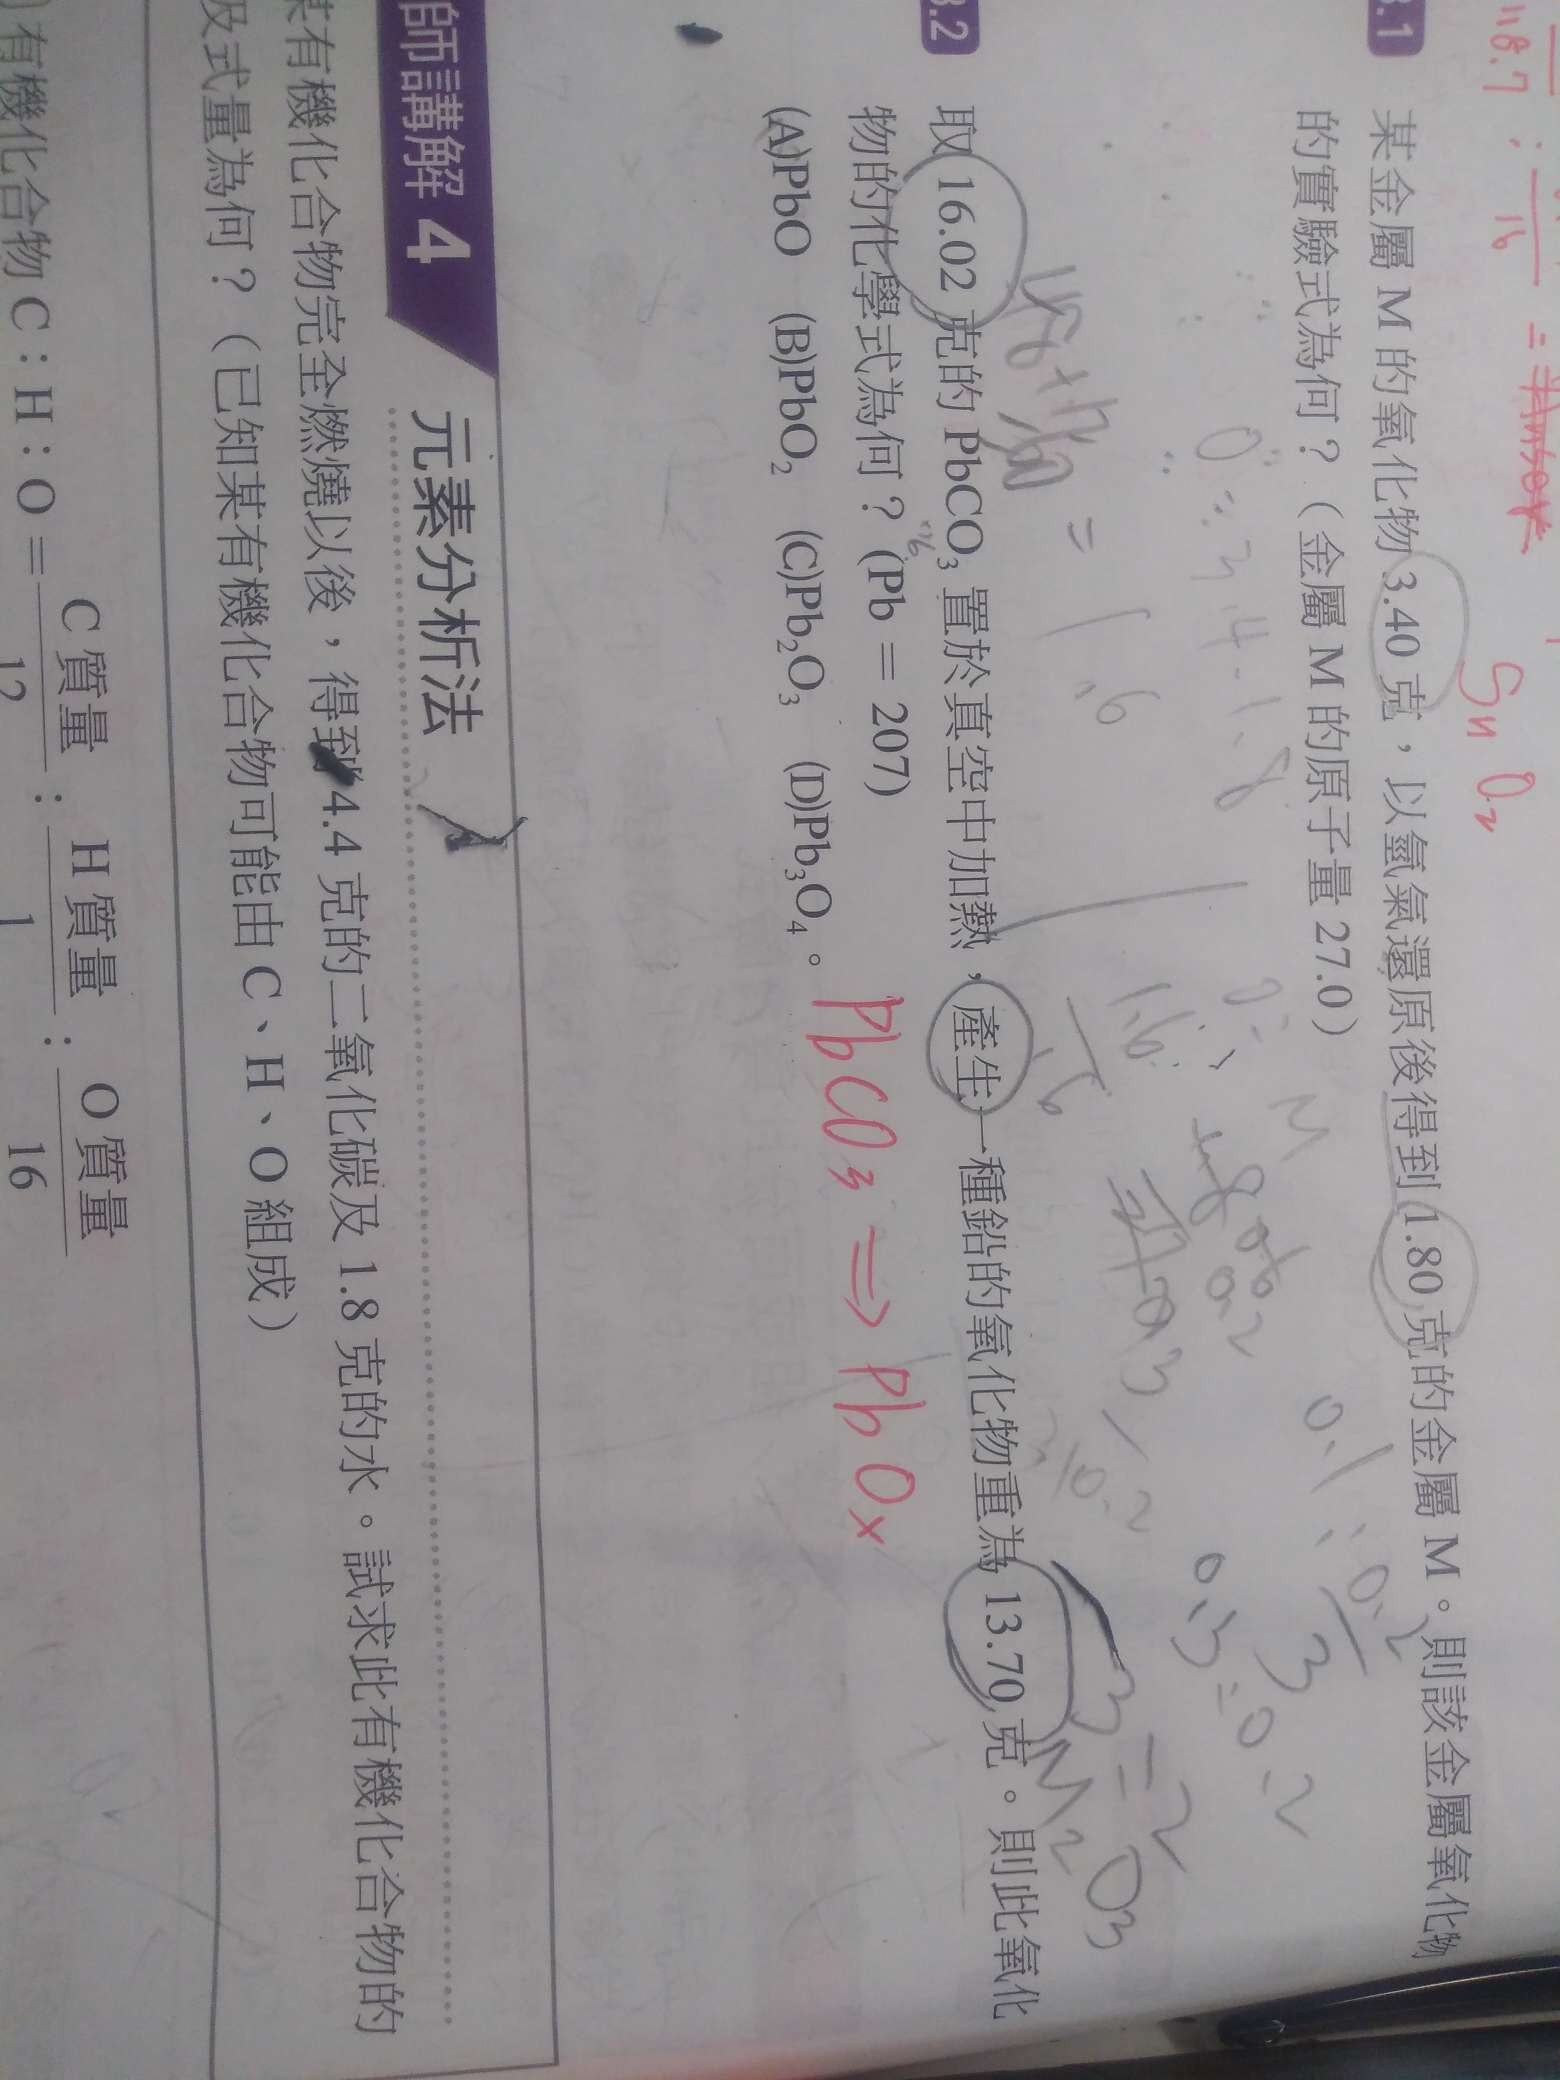 118.7 : 16 =
Sn O₂
3.1 某金屬 M 的氧化物 3.40 克，以氫氣還原後得到 1.80 克的金屬 M。則該金屬氧化物
的實驗式為何？（金屬 M 的原子量 27.0）
O = 3.4 - 1.8
= 1.6
0.1 : 0.2
0.3 = 0.2
3 = 2
M₂O₃
3.2 取 16.02 克的 PbCO₃ 置於真空中加熱，產生一種鉛的氧化物重為 13.70 克。則此氧化
物的化學式為何？(Pb = 207)
(A)PbO (B)PbO₂ (C)Pb₂O₃ (D)Pb₃O₄。
PbCO₃ ⇒ PbOx
師講解 4 元素分析法
某有機化合物完全燃燒以後，得到 4.4 克的二氧化碳及 1.8 克的水。試求此有機化合物的
及式量為何？（已知某有機化合物可能由 C、H、O 組成）
有機化合物 C : H : O = C 質量/12 : H 質量/1 : O 質量/16